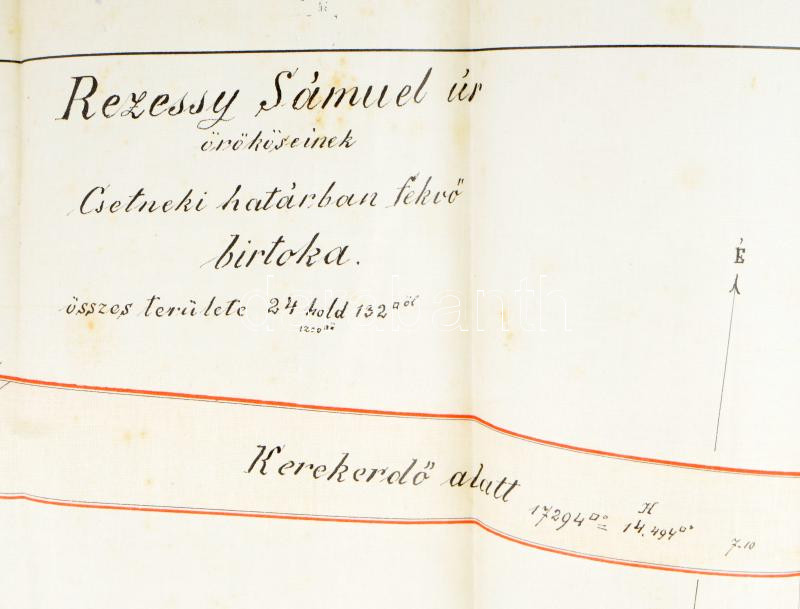 Rezessy Sámuel úr
örököseinek
Csetneki határban fekvő
birtoka.
összes területe 24 hold 132□öl
1200□öl
É
Kerekerdő alatt
17294□° = 14.494□°
H
7-10
darabanth